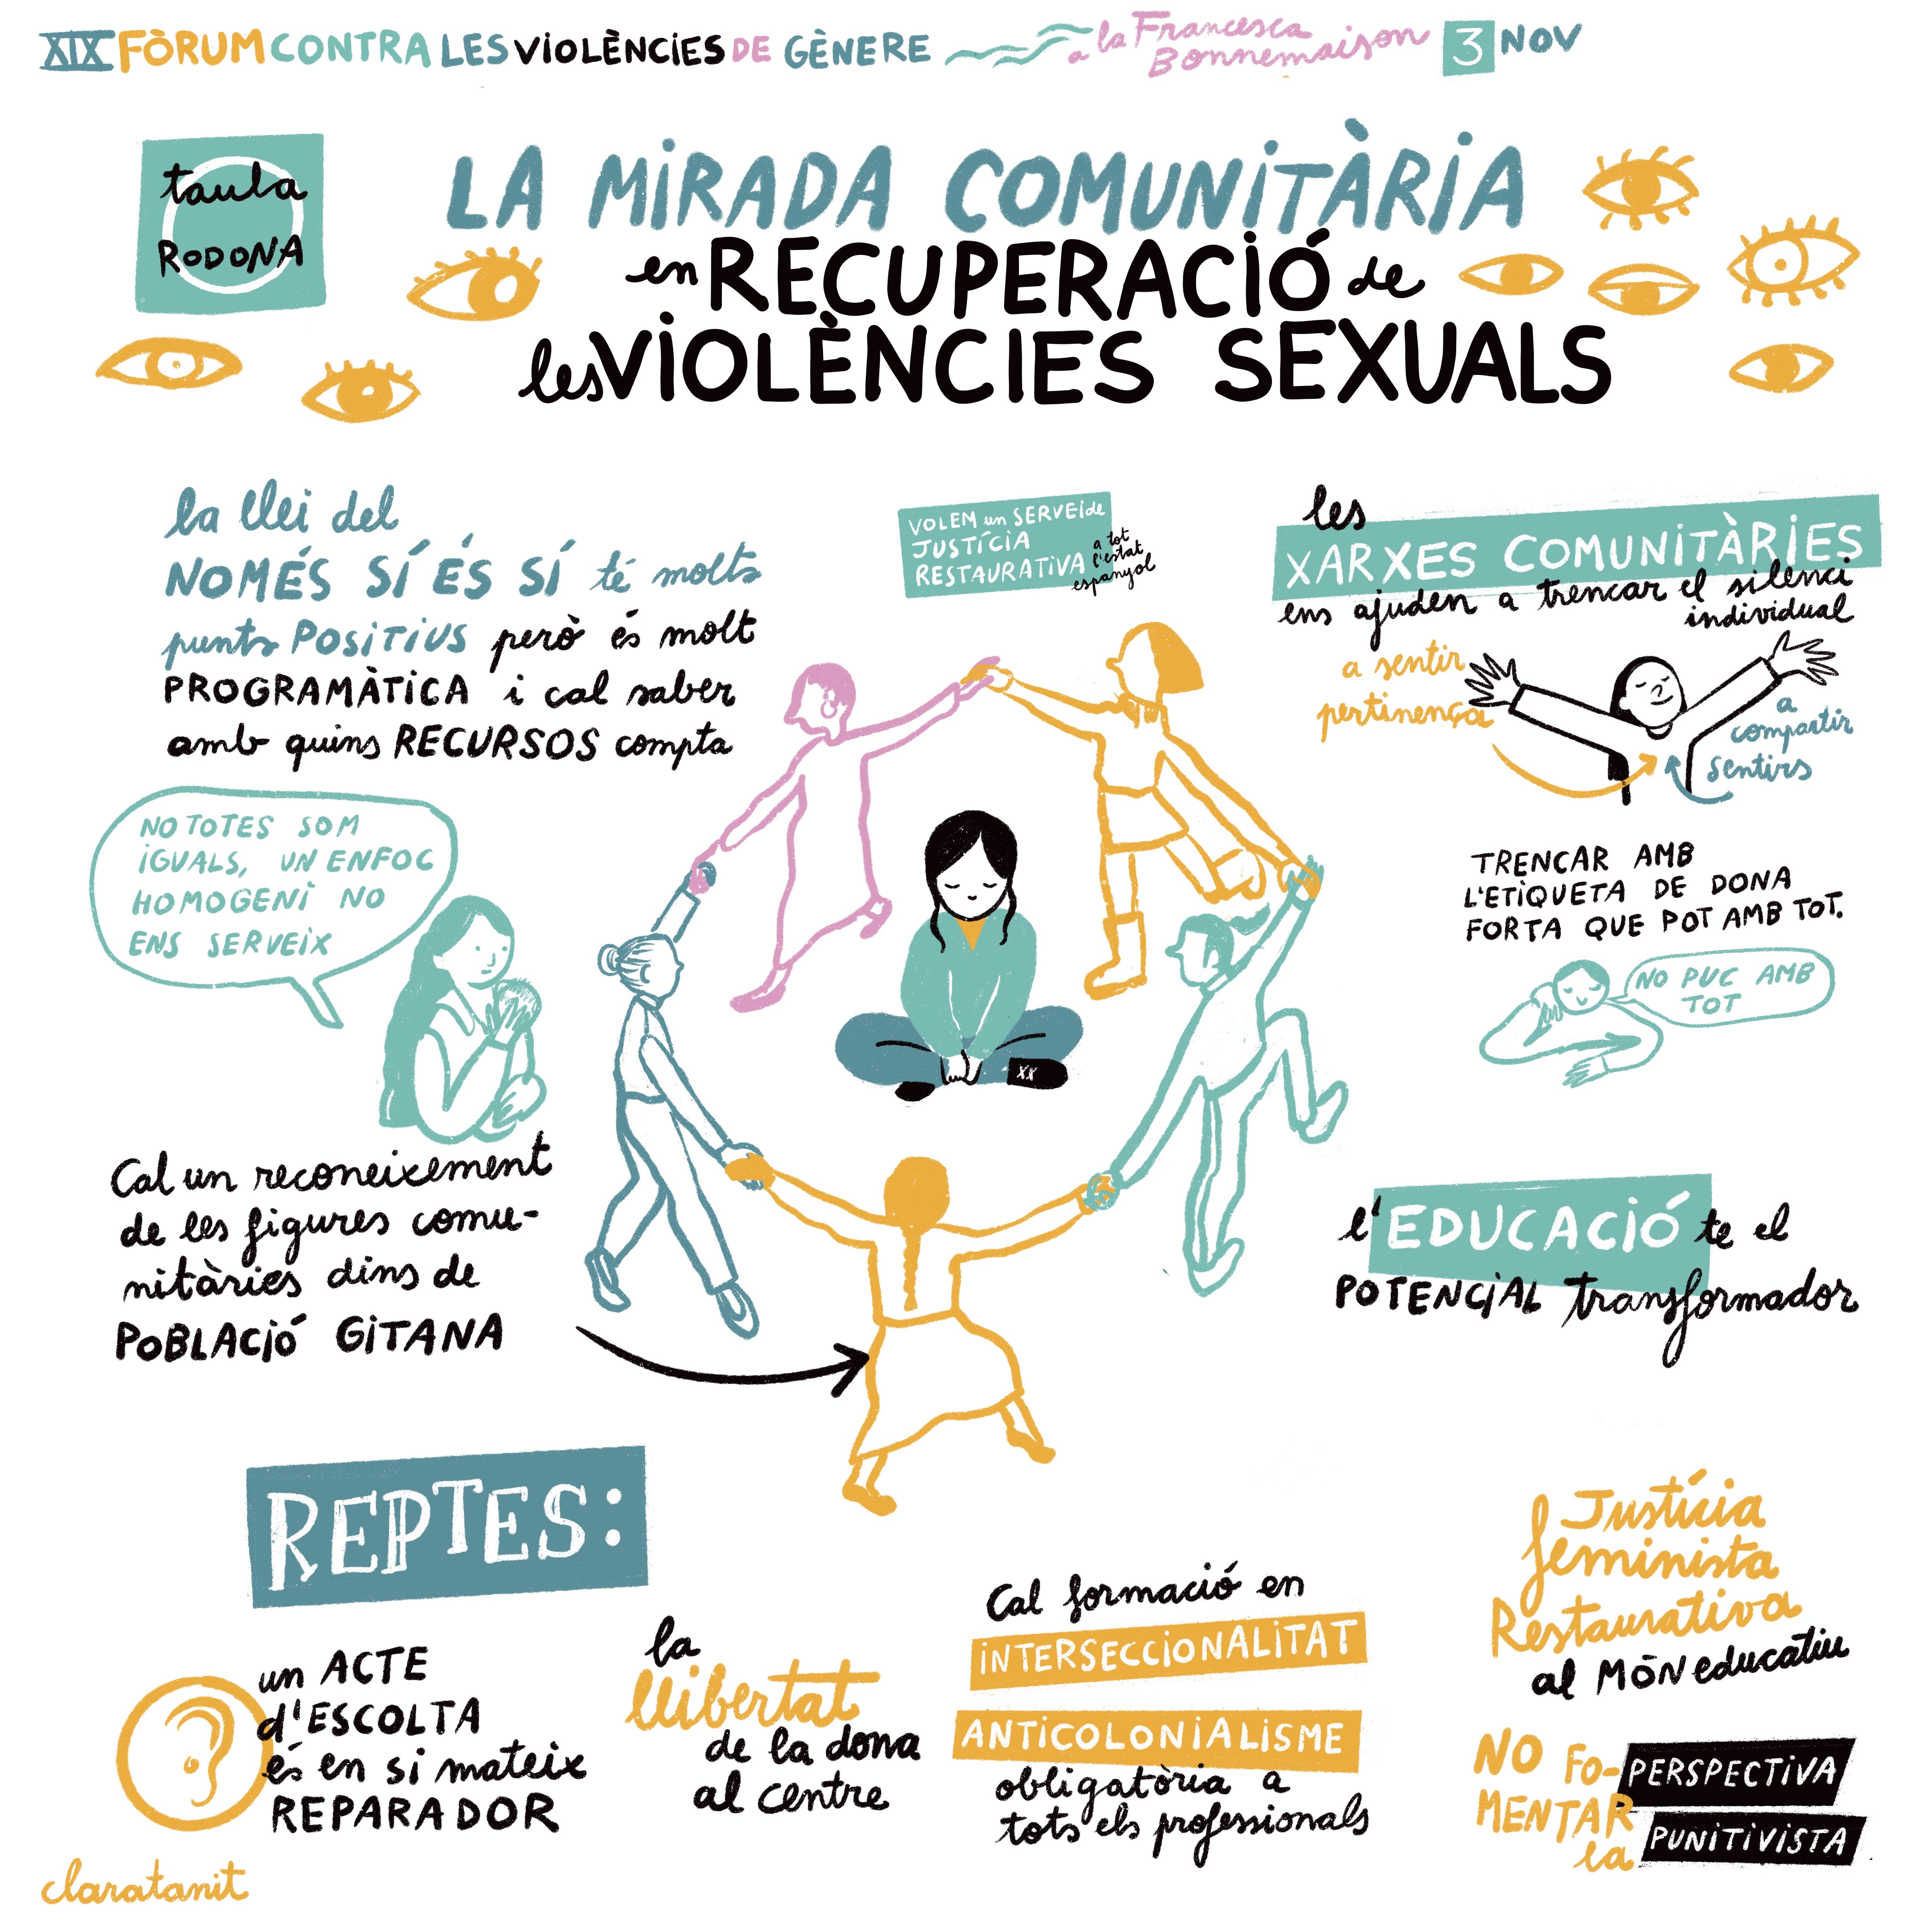 XIX FÒRUM CONTRA LES VIOLÈNCIES DE GÈNERE a la Francesca Bonnemaison 3 NOV
taula
RODONA
LA MIRADA COMUNITÀRIA
en RECUPERACIÓ de
les VIOLÈNCIES SEXUALS
la llei del
NOMÉS SÍ ÉS SÍ té molts
punts POSITIUS però és molt
PROGRAMÀTICA i cal saber
amb quins RECURSOS compta
VOLEM un SERVEI de
JUSTÍCIA
RESTAURATIVA
a tot
l'estat
espanyol
les
XARXES COMUNITÀRIES
ens ajuden a trencar el silenci
individual
a sentir
pertinença
a
compartir
sentirs
NO TOTES SOM
IGUALS, UN ENFOC
HOMOGENI NO
ENS SERVEIX
TRENCAR AMB
L'ETIQUETA DE DONA
FORTA QUE POT AMB TOT.
NO PUC AMB
TOT
XX
Cal un reconeixement
de les figures comu-
nitàries dins de
POBLACIÓ GITANA
l'EDUCACIÓ te el
POTENCIAL transformador
REPTES:
un ACTE
d'ESCOLTA
és en si mateix
REPARADOR
la
llibertat
de la dona
al centre
Cal formació en
INTERSECCIONALITAT
ANTICOLONIALISME
obligatòria a
tots els professionals
Justícia
feminista
Restaurativa
al MÓN educatiu
NO FO-
MENTAR
la
PERSPECTIVA
PUNITIVISTA
claratanit